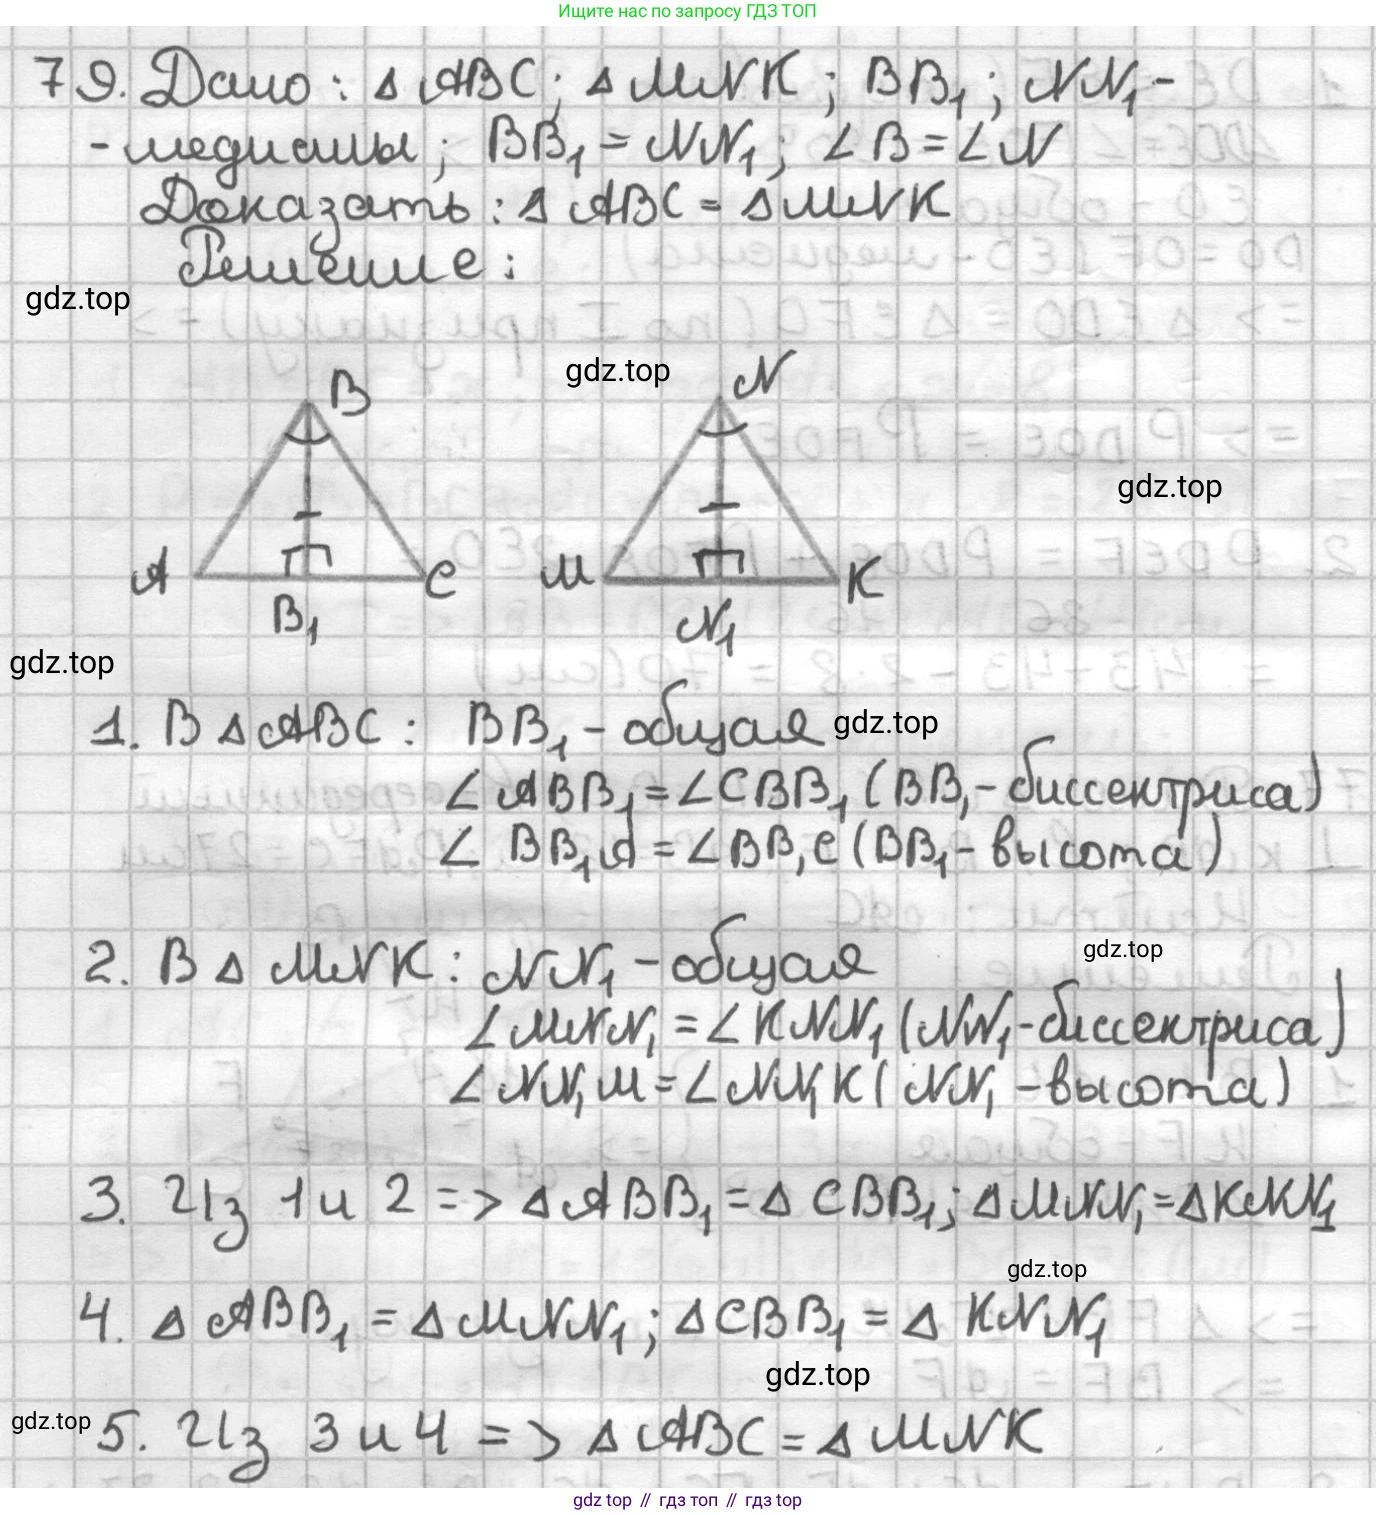 Ищите нас по запросу ГДЗ ТОП
79. Дано: Δ ABC; Δ MNK; BB₁; NN₁ -
- медианы; BB₁ = NN₁; ∠B = ∠N
Доказать: Δ ABC = Δ MNK
Решение:
gdz.top
gdz.top
B
N
gdz.top
A
C
M
K
B₁
N₁
gdz.top
1. В Δ ABC: BB₁ - общая
gdz.top
∠ABB₁ = ∠CBB₁ (BB₁ - биссектриса)
∠BB₁A = ∠BB₁C (BB₁ - высота)
gdz.top
2. В Δ MNK: NN₁ - общая
∠MNN₁ = ∠KNN₁ (NN₁ - биссектриса)
∠NN₁M = ∠NN₁K (NN₁ - высота)
3. Из 1 и 2 => Δ ABB₁ = Δ CBB₁; Δ MNN₁ = Δ KNN₁
gdz.top
4. Δ ABB₁ = Δ MNN₁; Δ CBB₁ = Δ KNN₁
gdz.top
gdz.top
5. Из 3 и 4 => Δ ABC = Δ MNK
gdz top // гдз топ // gdz top